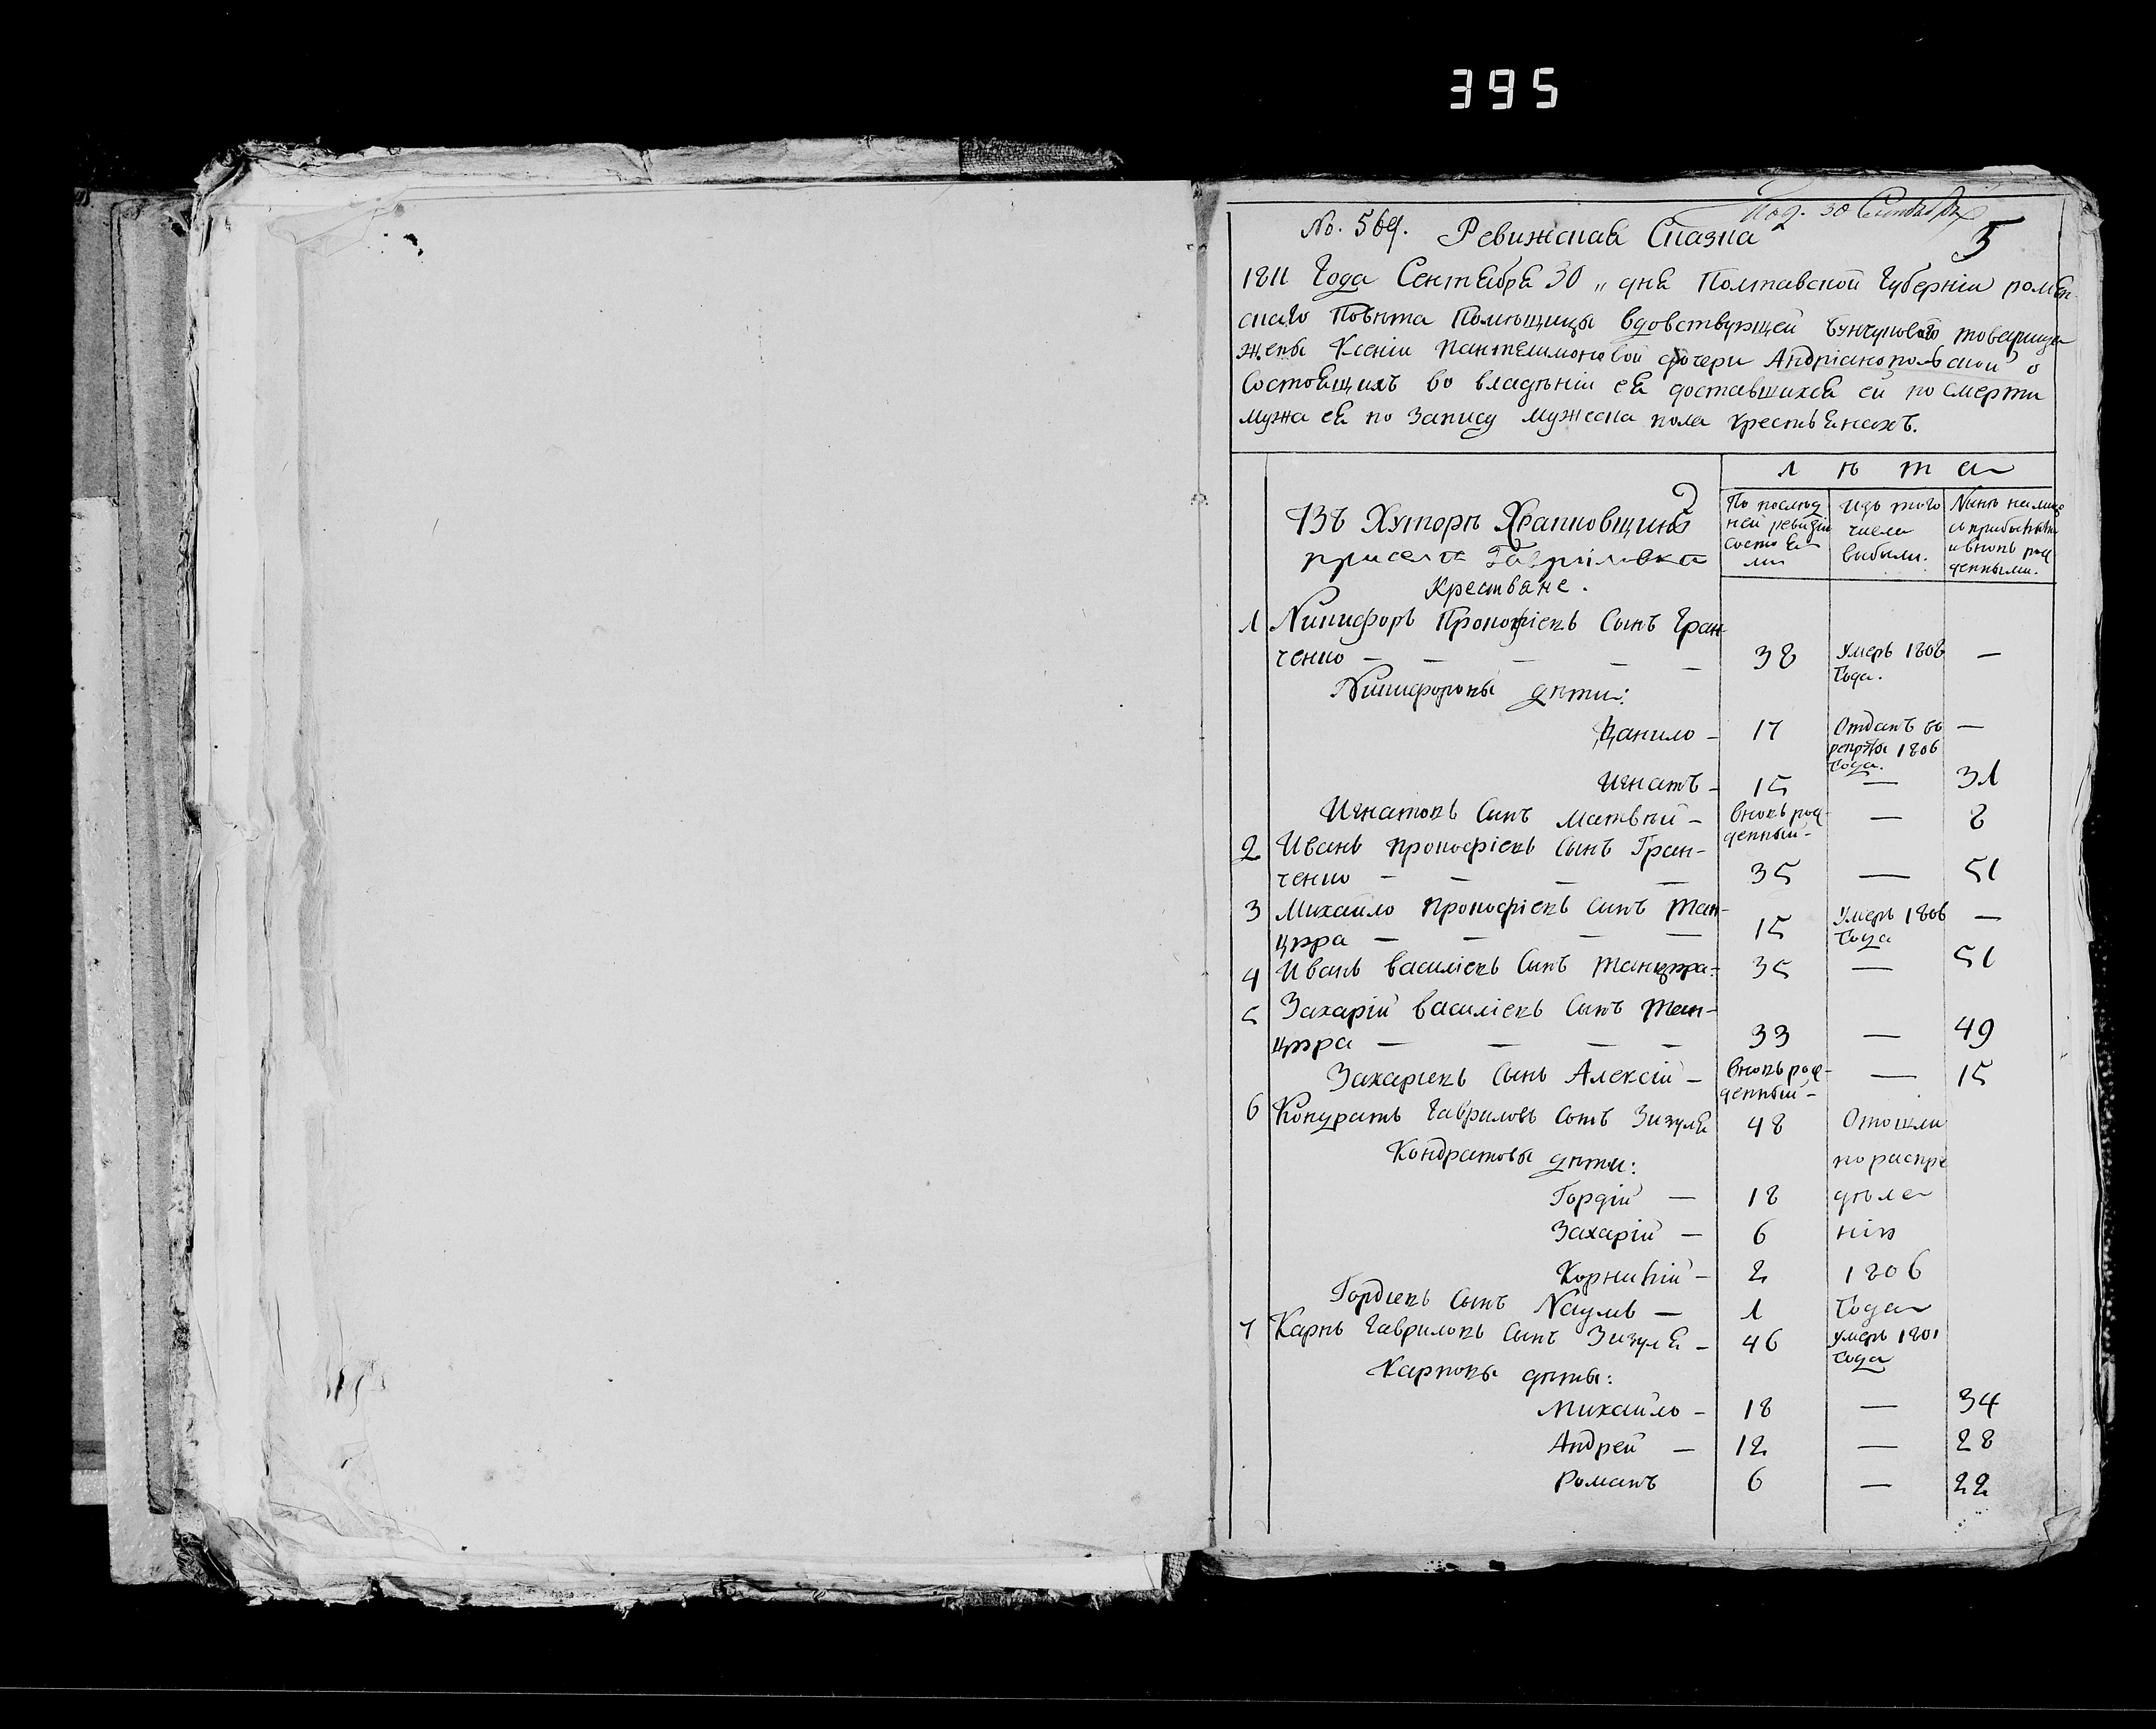 395
Под. 30 Сентября
No. 569. Ревижская Сказка 5
1811 Года Сентября 30 „ дня Полтавской Губерніи ромен
скаго Повѣта Помѣщицы вдовствующей бунчуковаго товарища
жены Ксеніи Пантелимоновой дочери Андріанопольской о
Состоящихъ во владѣніи ея доставшихся ей по смерти
мужа ея по запису мужеска пола крестьянахъ.
Лѣта
По послѣд
ней ревизіи
состоя
ли
изъ того
числа
выбыли.
Нынѣ на лицо
съ прибылыми
и вновь рож
денными.
Въ Хуторѣ Храповщинѣ
приселка Гавриловка
Крестьяне.
1 Никифоръ Прокофіевъ Сынъ Гран
ченко — — — — — 38 Умеръ 1808 —
Года.
Никифоровы дѣти:
Данило — 17 Отданъ въ —
рекруты 1806
Года.
Игнатъ — 15 — 31
Игнатовъ Сынъ Матвѣй — вновь рож- — 8
денный —
2 Иванъ Прокофіевъ Сынъ Гран-
ченко — — — — 35 — 51
3 Михайло Прокофіевъ Сынъ Ман-
цюра — — — — 15 Умеръ 1806 —
Года
4 Иванъ Василіевъ Сынъ Манцюра — 35 — 51
5 Захарій Василіевъ Сынъ Ман-
цюра — — — — 33 — 49
Захаріевъ Сынъ Алексій — вновь рож- — 15
денный —
6 Кондратъ Гавриловъ Сынъ Зизуля 48 Отошли
Кондратовы дѣти: по распре
Гордій — 18 дѣле
Захарій — 6 нію
Корнилій — 2 1806
Гордіевъ Сынъ Наумъ — 1 Года
7 Карпъ Гавриловъ Сынъ Зизуля — 46 умеръ 1801
Года
Карповы дѣти:
Михайло — 18 — 34
Андрей — 12 — 28
Романъ 6 — 22